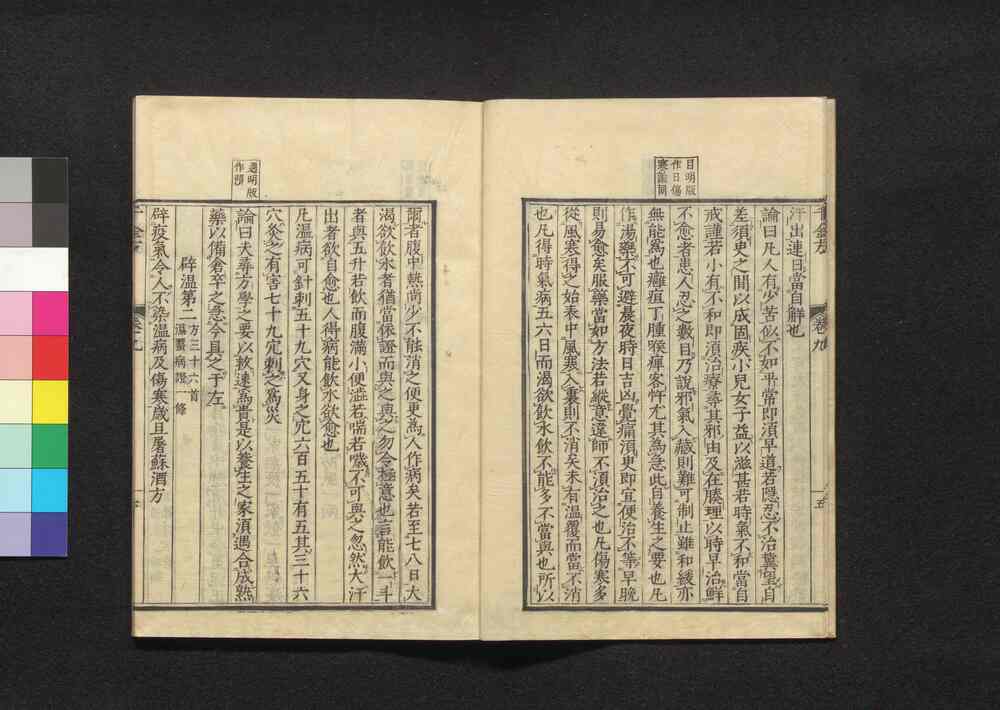 日明版
作日傷
寒論同
汗出連日當自解也
論曰凡人有少苦似不如平常即須早道若隱忍不治冀望自
差須臾之間以成固疾小兒女子益以滋甚若時氣不和當自
戒謹若小有不和即須治療尋其邪由及在腠理以時早治鮮
不愈者患人忍之數日乃說邪氣入藏則難可制止雖和緩亦
無能爲也癰疽丁腫喉痺客忤尤其爲急此自養生之要也凡
作湯藥不可避晨夜時日吉凶覺病須更即宜便治不等早晚
則易愈矣服藥當如方法若縱意違師不須治之也凡傷寒多
從風寒得之始表中風寒入裏則不消矣未有溫覆而當不消
也凡得時氣病五六日而渴欲飲水飲不能多不當與也所以
卷九
五
遇明版
作預
爾者腹中熱尚少不能消之便更爲人作病矣若至七八日大
渴欲飲水者猶當依證而與之與之勿令極意也言能飲一斗
者與五升若飲而腹滿小便澁若喘若噦不可與之忽然大汗
出者欲自愈也人得病能飲水欲愈也
凡溫病可針刺五十九穴又身之穴六百五十有五其三十六
穴灸之有害七十九穴刺之爲災
論曰夫尋方學之要以救速爲貴是以養生之家須遇合成熟
藥以備倉卒之急今具之于左
辟溫第二
方三十六首
瘟䘌病證一條
辟疫氣令人不染溫病及傷寒歲旦屠蘇酒方